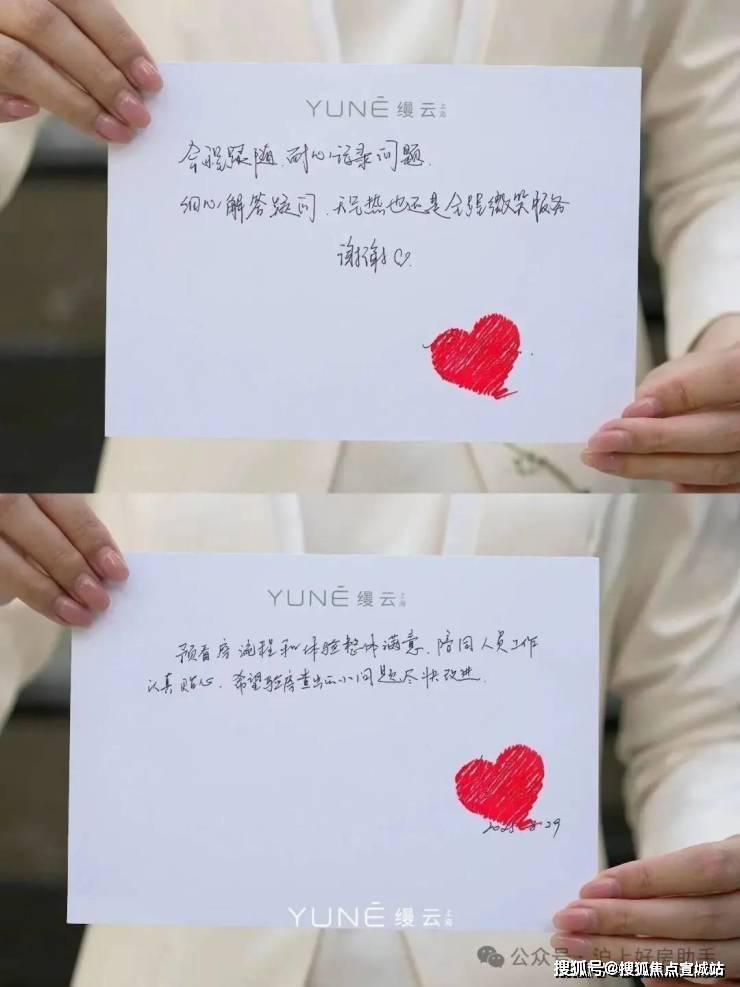 YUNĒ 缦云上海
全程跟随，耐心记录问题．
细心解答疑问，天气热也还是全程微笑服务
谢谢♡．
YUNĒ 缦云上海
预看房流程和体验整体满意，陪同人员工作
认真贴心，希望验房查出的小问题尽快改进．
2025-8-29
YUNĒ 缦云上海
公众号·沪上好房助手
搜狐号@搜狐焦点宣城站